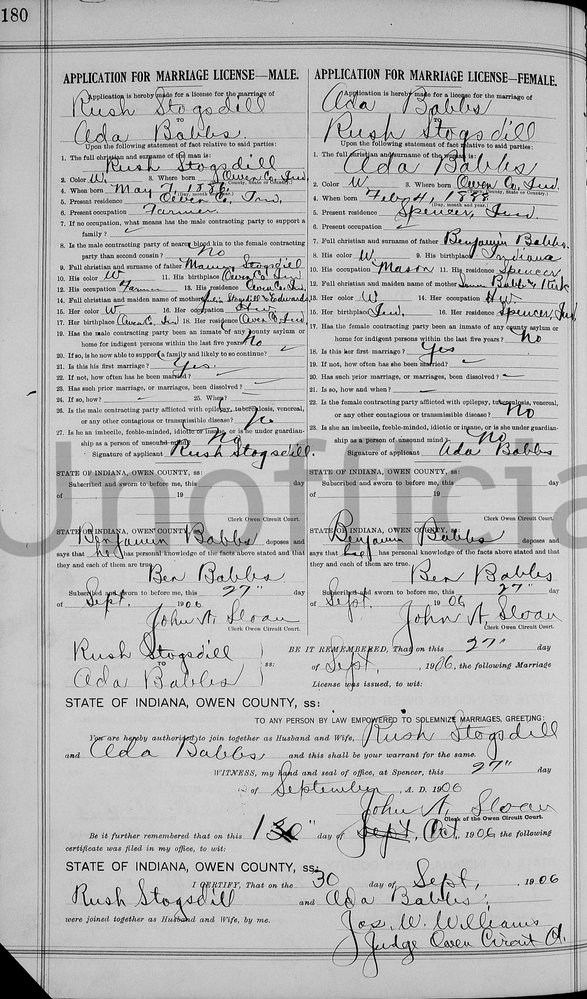 180
APPLICATION FOR MARRIAGE LICENSE—MALE.
Application is hereby made for a license for the marriage of
Rush Stogsdill
TO
Ada Babbs.
Upon the following statement of fact relative to said parties:
1. The full christian and surname of the man is:
Rush Stogsdill
2. Color W. 3. Where born Owen Co, Ind.
(Town, County, State or Country.)
4. When born May 7, 1886.
(Day, month and year.)
5. Present residence Owen Co, Ind.
6. Present occupation Farmer.
7. If no occupation, what means has the male contracting party to support a
family? ✓
8. Is the male contracting party of nearer blood kin to the female contracting
party than second cousin? No
9. Full christian and surname of father Stogsdill
10. His color W 11. His birthplace Owen Co, Ind
12. His occupation Farmer 13. His residence Owen Co, In.
14. Full christian and maiden name of mother Stogsdill Edwards
15. Her color W 16. Her occupation H w
17. Her birthplace Owen Co. In 18. Her residence Owen Co, Ind.
19. Has the male contracting party been an inmate of any county asylum or
home for indigent persons within the last five years? No
20. If so, is he now able to support a family and likely to so continue? ✓
21. Is this his first marriage? Yes.
22. If not, how often has he been married? ✓
23. Has such prior marriage, or marriages, been dissolved? ✓
24. If so, how? ✓ 25. When?
26. Is the male contracting party afflicted with epilepsy, tuberculosis, venereal,
or any other contagious or transmissible disease? No
27. Is he an imbecile, feeble-minded, idiotic or insane, or is he under guardian-
ship as a person of unsound mind? No
Signature of applicant Rush Stogsdill.
STATE OF INDIANA, OWEN COUNTY, ss:
Subscribed and sworn to before me, this day
of 19
Clerk Owen Circuit Court.
STATE OF INDIANA, OWEN COUNTY, ss:
Benjamin Babbs deposes and
says that he has personal knowledge of the facts above stated and that
they and each of them are true.
Ben Babbs
Subscribed and sworn to before me, this 27" day
of Sept. 1906
John A. Sloan
Clerk Owen Circuit Court.
APPLICATION FOR MARRIAGE LICENSE—FEMALE.
Application is hereby made for a license for the marriage of
Ada Babbs
TO
Rush Stogsdill
Upon the following statement of fact relative to said parties:
1. The full christian and surname of the woman is:
Ada Babbs.
2. Color W 3. Where born Owen Co, Ind.
(Town, County, State or Country.)
4. When born Feby 4, 1888
(Day, month and year.)
5. Present residence Spencer, Ind
6. Present occupation ✓
7. Full christian and surname of father Benjamin Babbs.
8. His color W. 9. His birthplace Indiana
10. His occupation Mason 11. His residence Spencer
12. Full christian and maiden name of mother Babbs Kirk
13. Her color W 14. Her occupation H w.
15. Her birthplace Ind. 16. Her residence Spencer, Ind
17. Has the female contracting party been an inmate of any county asylum or
home for indigent persons within the last five years? No
18. Is this her first marriage? Yes
19. If not, how often has she been married? ✓
20. Has such prior marriage, or marriages, been dissolved? ✓
21. If so, how and when? ✓
22. Is the female contracting party afflicted with epilepsy, tuberculosis, venereal,
or any other contagious or transmissible disease? No
23. Is she an imbecile, feeble-minded, idiotic or insane, or is she under guardian-
ship as a person of unsound mind? No
Signature of applicant Ada Babbs
STATE OF INDIANA, OWEN COUNTY, ss:
Subscribed and sworn to before me, this day
of 19
Clerk Owen Circuit Court.
STATE OF INDIANA, OWEN COUNTY, ss:
Benjamin Babbs deposes and
says that he has personal knowledge of the facts above stated and that
they and each of them are true.
Ben Babbs
Subscribed and sworn to before me, this 27" day
of Sept. 1906
John A. Sloan
Clerk Owen Circuit Court.
Unofficia
Rush Stogsdill
TO
Ada Babbs
ss:
BE IT REMEMBERED, That on this 27" day
of Sept, , 1906, the following Marriage
License was issued, to wit:
STATE OF INDIANA, OWEN COUNTY, ss:
TO ANY PERSON BY LAW EMPOWERED TO SOLEMNIZE MARRIAGES, GREETING:
You are hereby authorized to join together as Husband and Wife, Rush Stogsdill
and Ada Babbs and this shall be your warrant for the same.
WITNESS, my hand and seal of office, at Spencer, this 27" day
of September A. D. 1906
John A. Sloan
Clerk of the Owen Circuit Court.
Be it further remembered that on this 1 day of Sept, Oct. 1906 the following
certificate was filed in my office, to wit:
STATE OF INDIANA, OWEN COUNTY, ss:
I CERTIFY, That on the 30 day of Sept, , 1906
Rush Stogsdill and Ada Babbs,
were joined together as Husband and Wife, by me.
Jos. W. Williams
Judge Owen Circuit Ct.